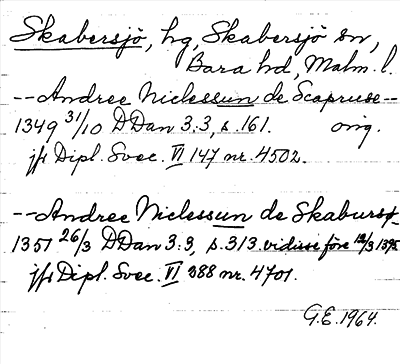 Skabersjö, hg, Skabersjö sn,
Bara hd, Malm. l.
--Andree Niclessun de Scapruse--
1349 31/10 DDan 3:3, s. 161. orig.
jfr Dipl. Svec. VI 147 nr. 4502.
--Andree Niclessun de Skabursø-
1351 26/3 DDan 3:3, s. 313. vidisse före 12/3 1395
jfr Dipl. Svec. VI 388 nr. 4701.
G.E. 1964.